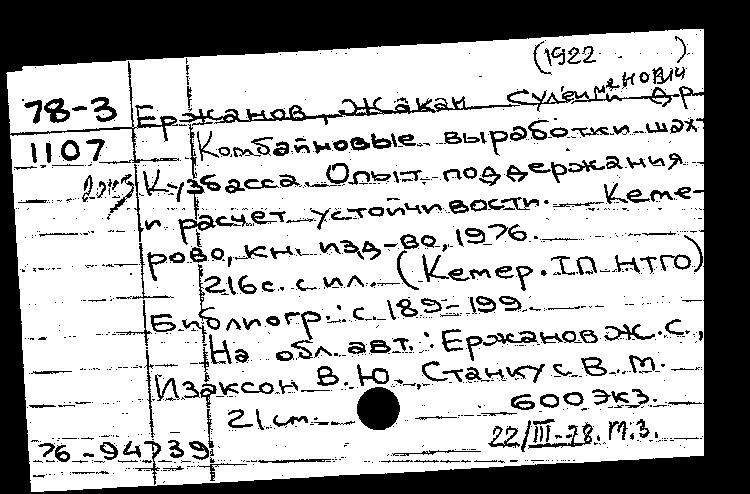 (1922 )
78-3 Ержанов, Жакан Сулейманович др.
1107 Комбайновые выработки шахт
2 экз Кузбасса. Опыт поддержания
и расчет устойчивости. Кеме-
рово, кн. изд-во, 1976.
216 с. с ил. (Кемер. ГП НТГО)
Библиогр.: с 189-199.
На обл. авт.: Ержанов Ж. С.,
Изаксон В. Ю., Станкус В. М.
21 см. 600 экз.
22/III-78. М.З.
76-94739